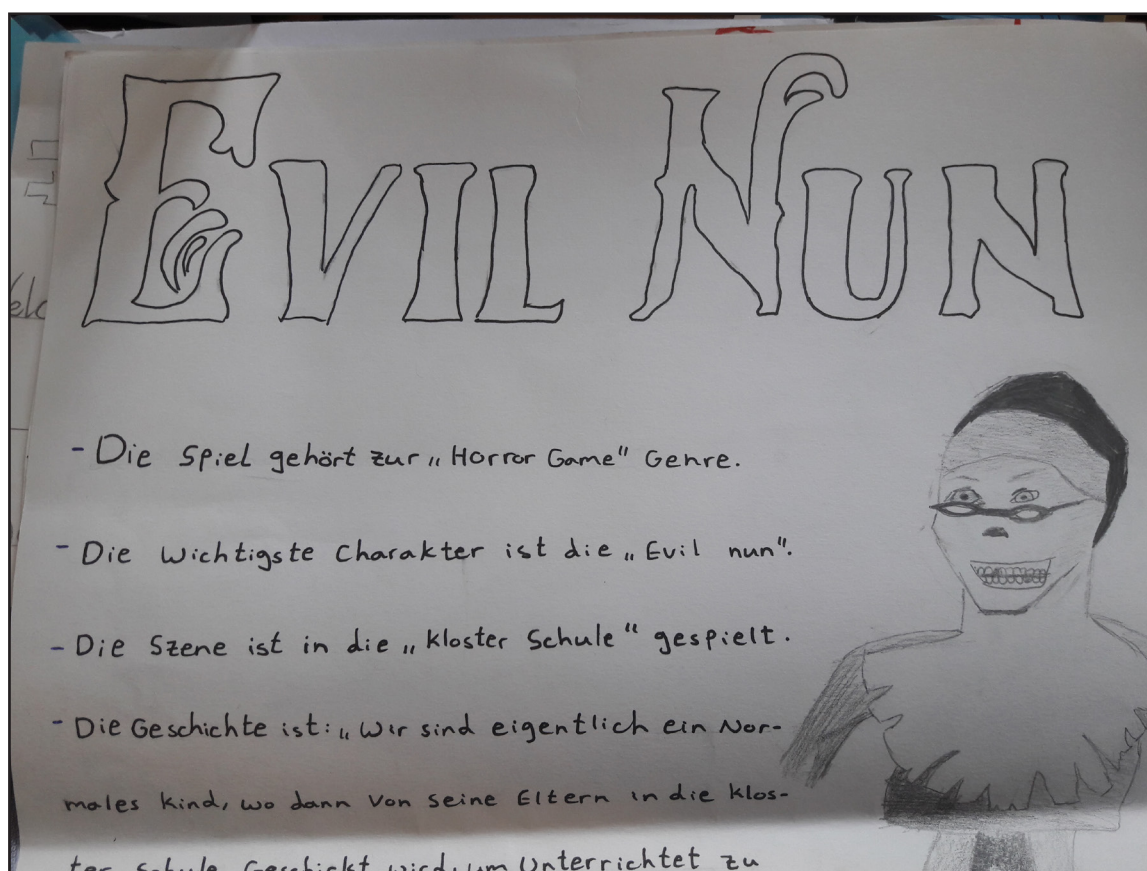 EVIL NUN
- Die Spiel gehört zur „Horror Game" Genre.
- Die wichtigste Charakter ist die „Evil nun".
- Die Szene ist in die „kloster Schule" gespielt.
- Die Geschichte ist: „Wir sind eigentlich ein Nor-
males kind, wo dann von seine Eltern in die klos-
ter schule Geschickt wird, um Unterrichtet zu